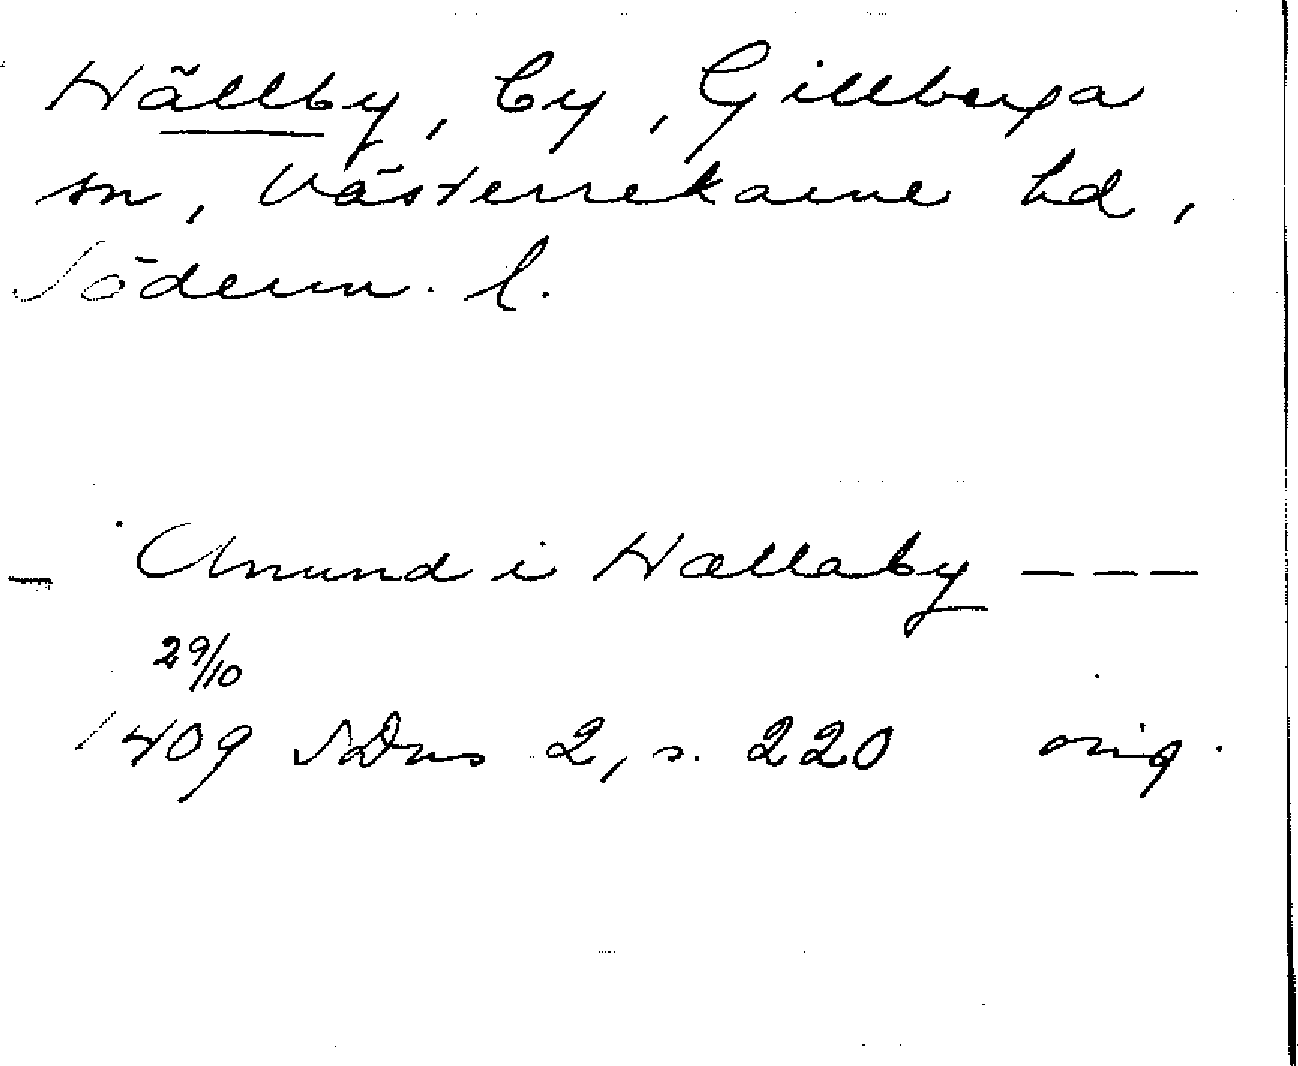 Hällby, by, Gillberga
sn, Västerrekarne hd,
Söderm. l.
- Anund i Hællaby ---
29/10
1409 SDns 2, s. 220 orig.